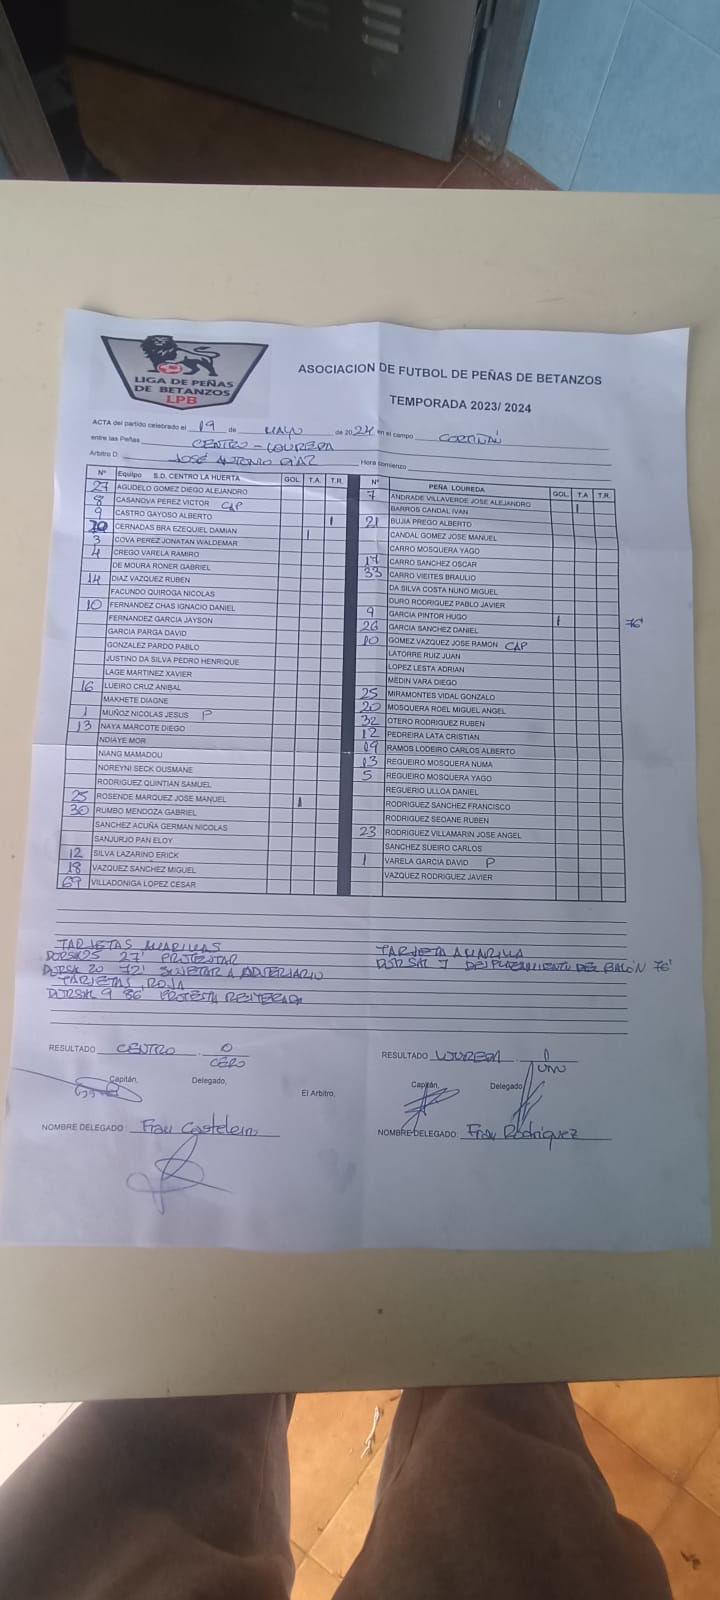 LIGA DE PEÑAS
DE BETANZOS
LPB
ASOCIACION DE FUTBOL DE PEÑAS DE BETANZOS
TEMPORADA 2023/ 2024
ACTA del partido celebrado el 19 de MAYO de 2024 en el campo CORTIÑAN
entre las Peñas CENTRO - LOUREDA
Arbitro D. JOSÉ ANTONIO DIAZ Hora comienzo
Nº Equipo S.D. CENTRO LA HUERTA GOL T.A. T.R.
27 AGUDELO GOMEZ DIEGO ALEJANDRO
8 CASANOVA PEREZ VICTOR CAP
9 CASTRO GAYOSO ALBERTO 1
20 CERNADAS BRA EZEQUIEL DAMIAN 1
3 COVA PEREZ JONATAN WALDEMAR
4 CREGO VARELA RAMIRO
DE MOURA RONER GABRIEL
14 DIAZ VAZQUEZ RUBEN
FACUNDO QUIROGA NICOLAS
10 FERNANDEZ CHAS IGNACIO DANIEL
FERNANDEZ GARCIA JAYSON
GARCIA PARGA DAVID
GONZALEZ PARDO PABLO
JUSTINO DA SILVA PEDRO HENRIQUE
LAGE MARTINEZ XAVIER
16 LUEIRO CRUZ ANIBAL
MAKHETE DIAGNE
1 MUÑOZ NICOLAS JESUS P
13 NAYA MARCOTE DIEGO
NDIAYE MOR
NIANG MAMADOU
NOREYNI SECK OUSMANE
RODRIGUEZ QUINTIAN SAMUEL
25 ROSENDE MARQUEZ JOSE MANUEL 1
30 RUMBO MENDOZA GABRIEL
SANCHEZ ACUÑA GERMAN NICOLAS
SANJURJO PAN ELOY
12 SILVA LAZARINO ERICK
18 VAZQUEZ SANCHEZ MIGUEL
69 VILLADONIGA LOPEZ CESAR
Nº PEÑA LOUREDA GOL T.A. T.R.
7 ANDRADE VILLAVERDE JOSE ALEJANDRO 1
BARROS CANDAL IVAN
21 BUJIA PREGO ALBERTO
CANDAL GOMEZ JOSE MANUEL
CARRO MOSQUERA YAGO
17 CARRO SANCHEZ OSCAR
33 CARRO VIEITES BRAULIO
DA SILVA COSTA NUNO MIGUEL
DURO RODRIGUEZ PABLO JAVIER
9 GARCIA PINTOR HUGO 1 76'
26 GARCIA SANCHEZ DANIEL
10 GOMEZ VAZQUEZ JOSE RAMON CAP
LATORRE RUIZ JUAN
LOPEZ LESTA ADRIAN
MEDIN VARA DIEGO
25 MIRAMONTES VIDAL GONZALO
20 MOSQUERA ROEL MIGUEL ANGEL
32 OTERO RODRIGUEZ RUBEN
12 PEDREIRA LATA CRISTIAN
19 RAMOS LODEIRO CARLOS ALBERTO
13 REGUEIRO MOSQUERA NUMA
5 REGUEIRO MOSQUERA YAGO
REGUERIO ULLOA DANIEL
RODRIGUEZ SANCHEZ FRANCISCO
RODRIGUEZ SEOANE RUBEN
23 RODRIGUEZ VILLAMARIN JOSE ANGEL
SANCHEZ SUEIRO CARLOS
1 VARELA GARCIA DAVID P
VAZQUEZ RODRIGUEZ JAVIER
TARJETAS AMARILLAS
DORSAL 25 27' PROTESTAR
DORSAL 20 72' SUJETAR A ADVERSARIO
TARJETAS ROJA
DORSAL 9 86' PROTESTA REITERADA
TARJETA AMARILLA
DORSAL 7 DESPLAZAMIENTO DEL BALÓN 76'
RESULTADO CENTRO 0
CERO
Capitán, Delegado,
El Arbitro,
RESULTADO LOUREDA 1
UNO
Capitán, Delegado
NOMBRE DELEGADO: Fran Castelein
NOMBRE DELEGADO: Fran Rodriguez